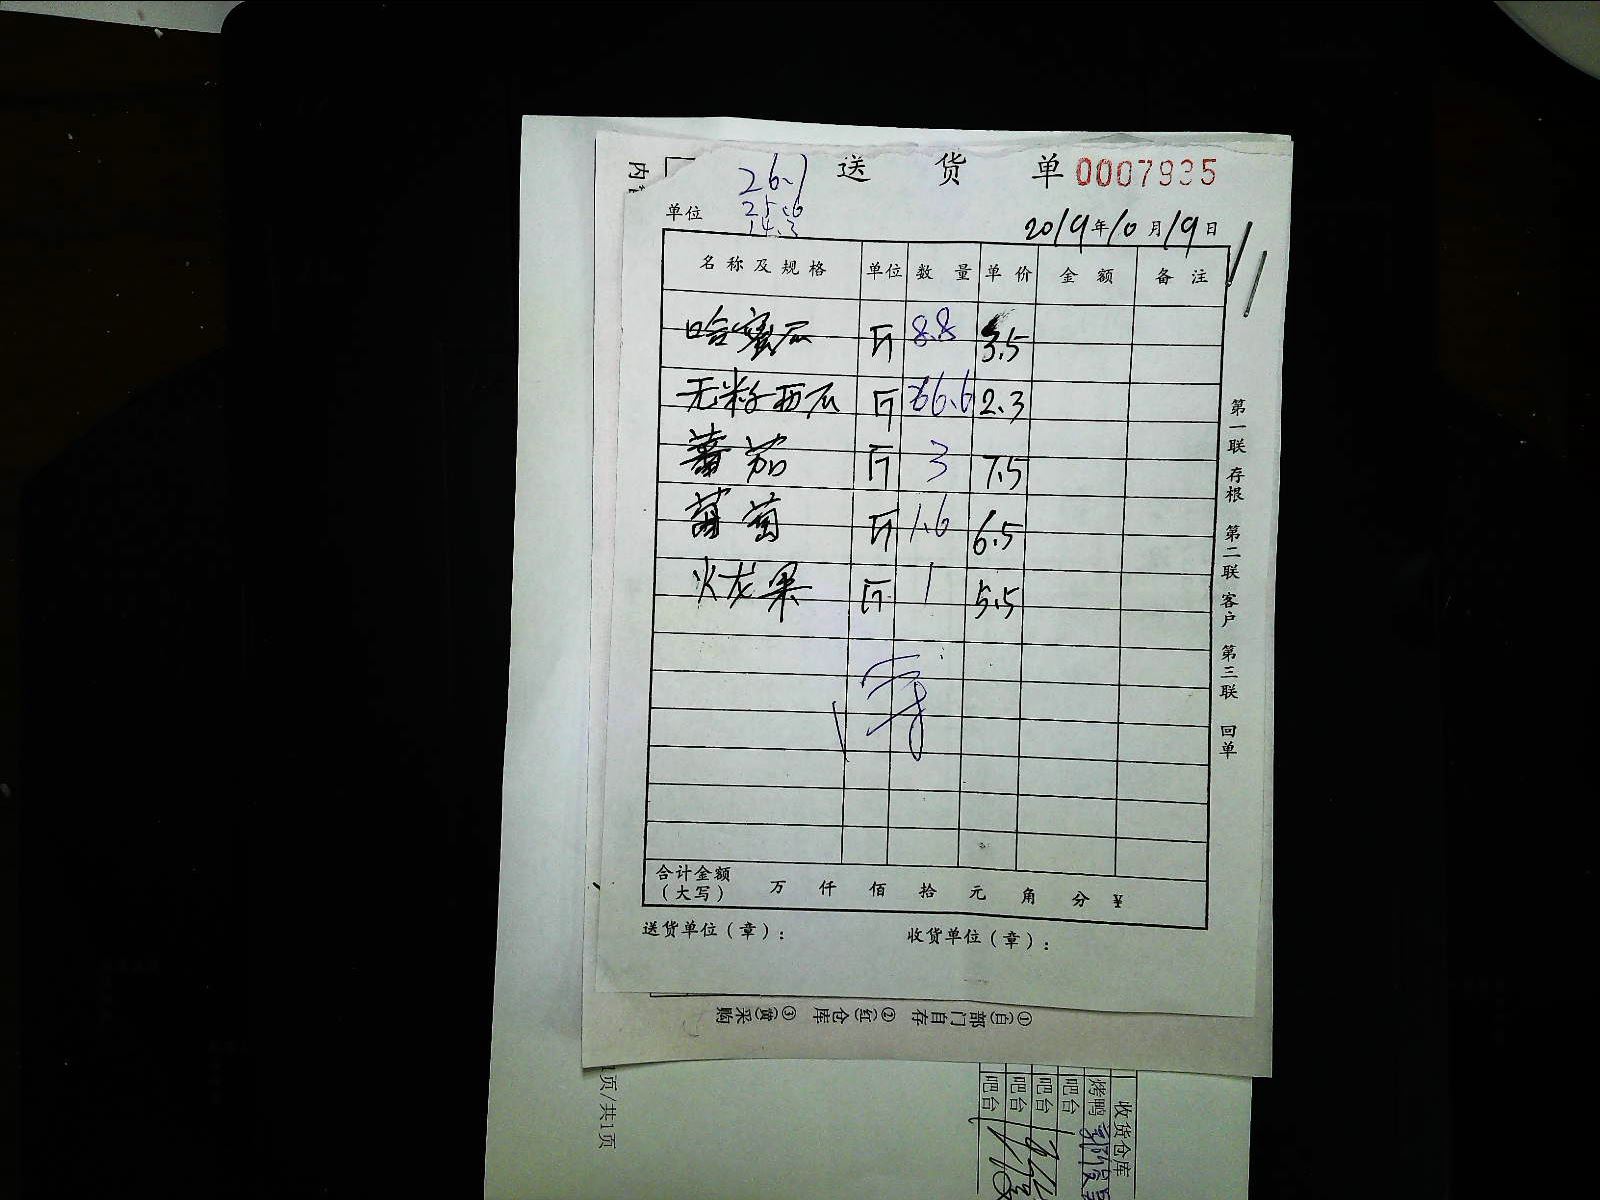 内
送 货 单 0007935
26.1
单位 25.6
14.3
2019年10月19日
名称及规格 单位 数量 单价 金额 备注
哈蜜瓜 斤 8.8 3.5
无籽西瓜 斤 66.6 2.3
蕃茄 斤 3 7.5
葡萄 斤 1.6 6.5
火龙果 斤 1 5.5
合计金额（大写） 万 仟 佰 拾 元 角 分 ¥
送货单位（章）： 收货单位（章）：
第一联 存根 第二联 客户 第三联 回单
①(白)部门自存 ②(红)仓库 ③(黄)采购
1页/共1页
收货仓库
烤鸭
吧台
吧台
吧台
吧台